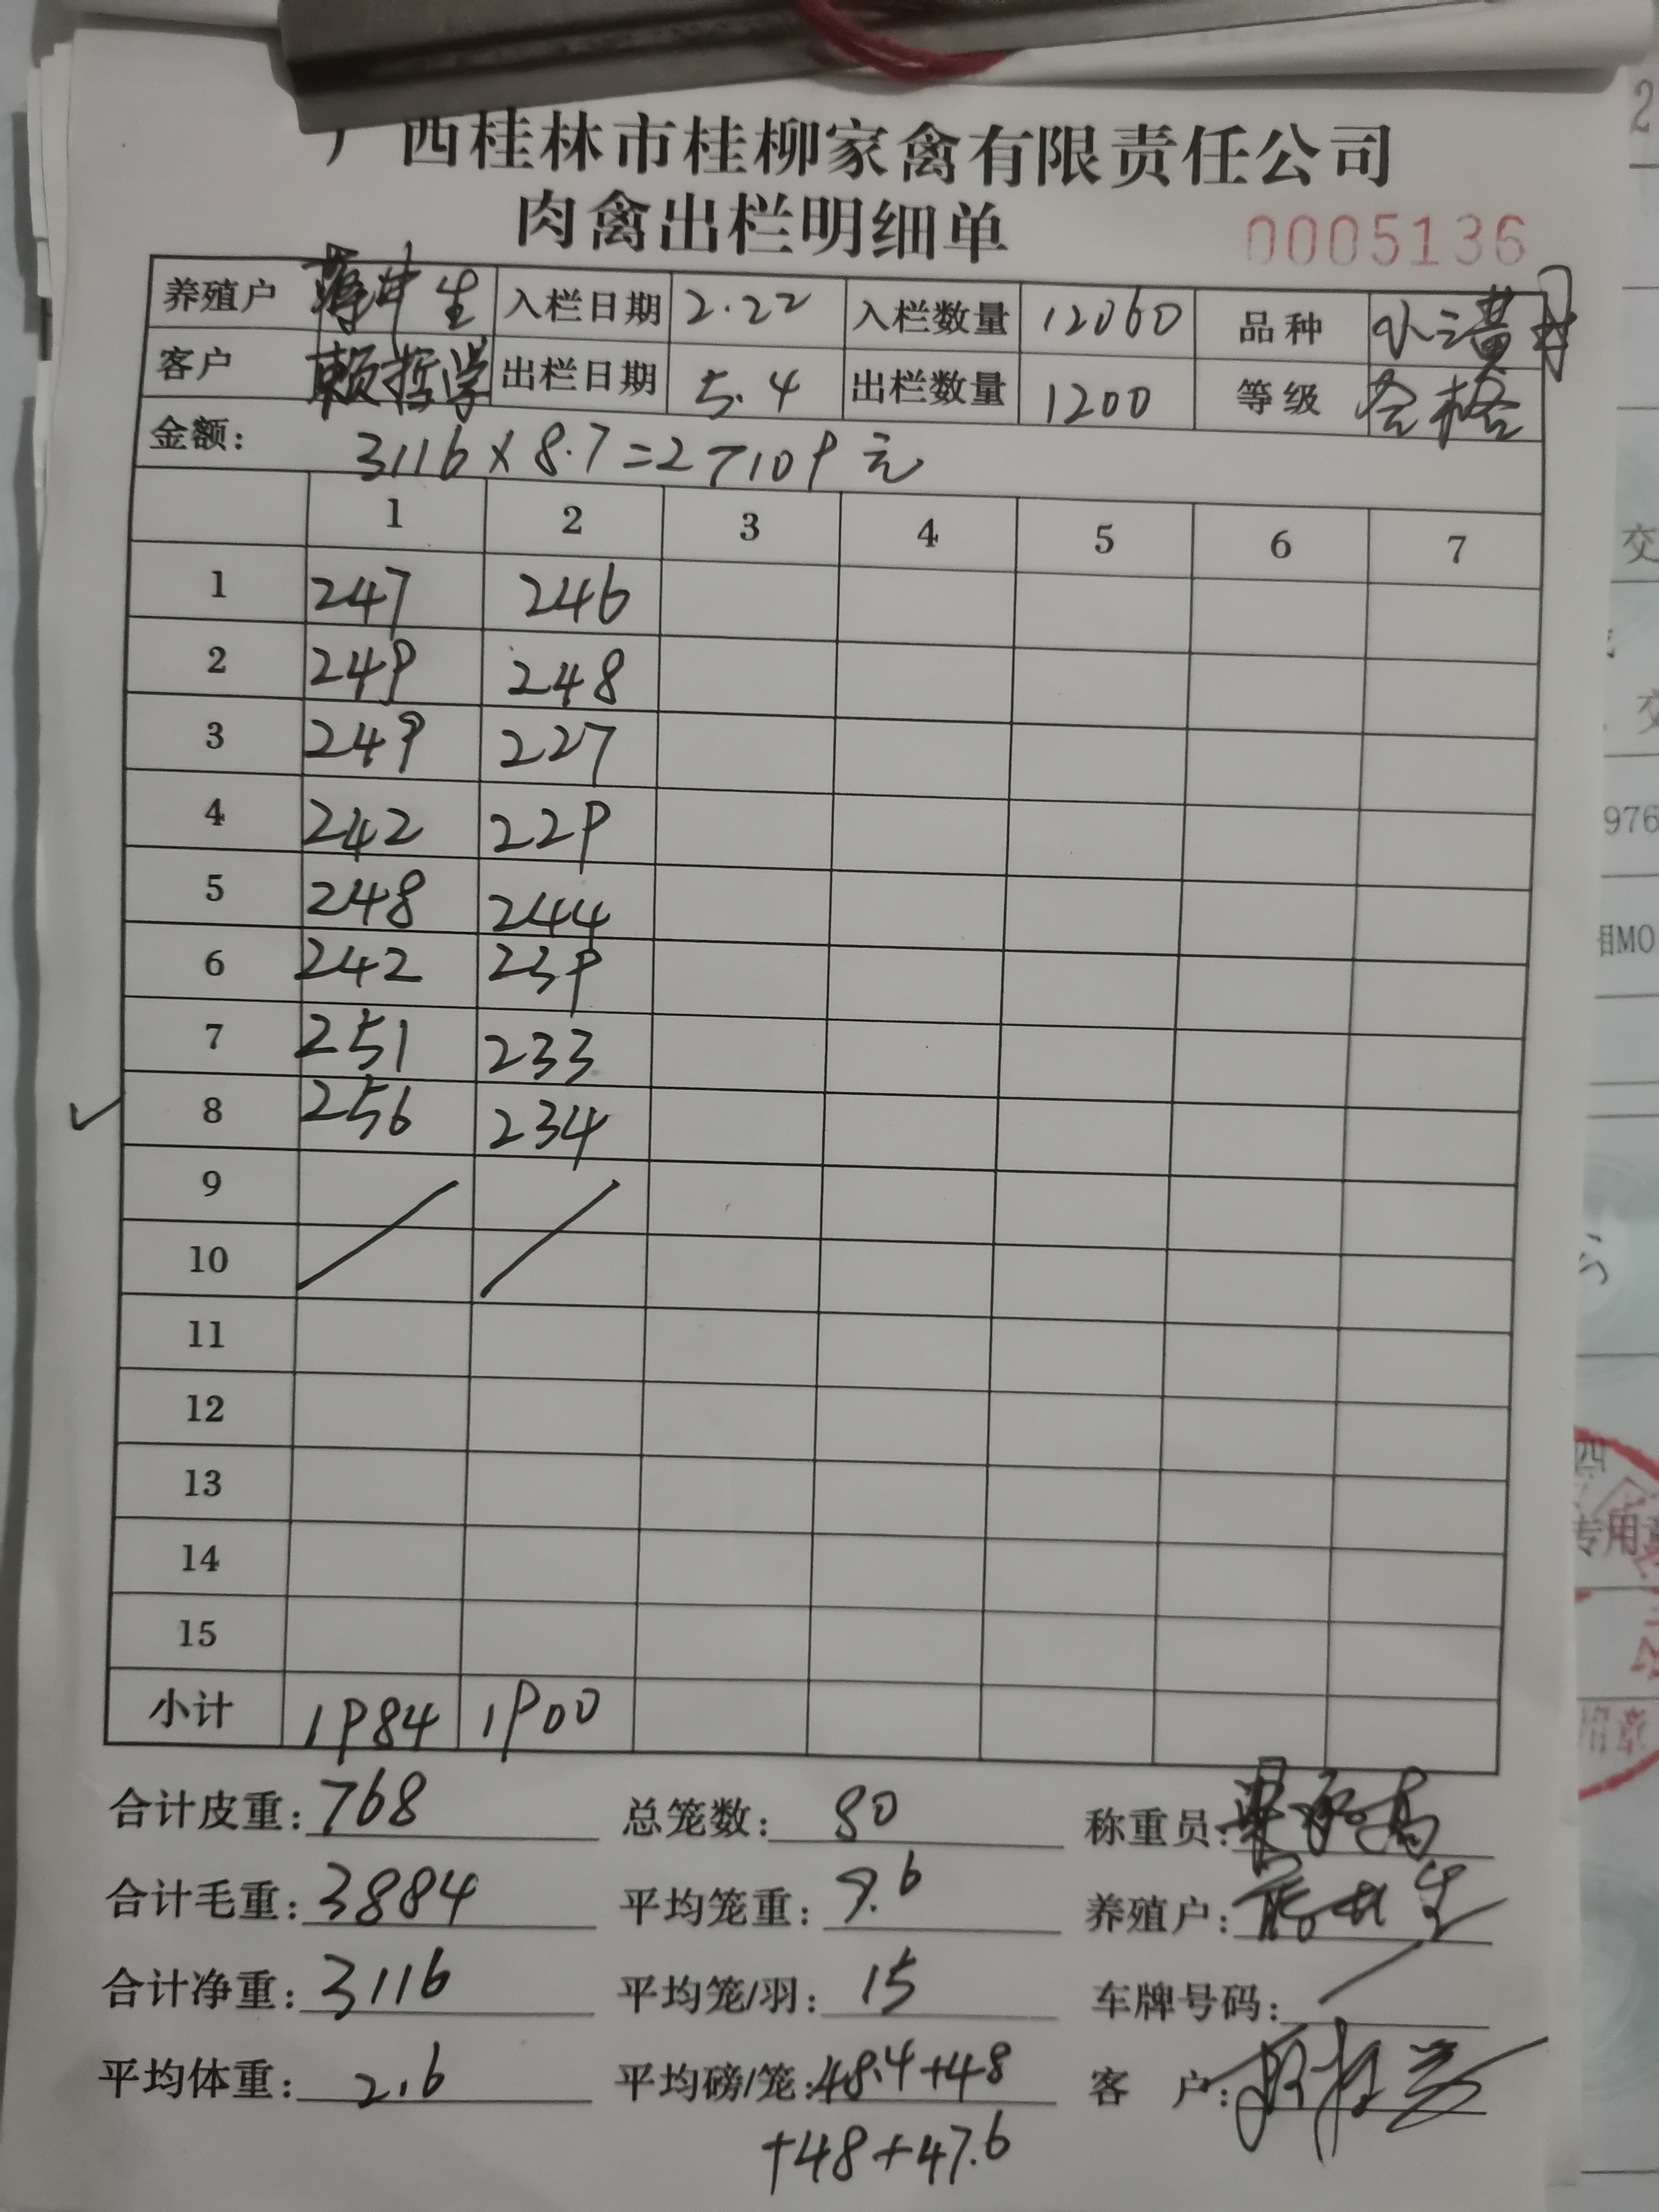 广西桂林市桂柳家禽有限责任公司
肉禽出栏明细单
0005136
养殖户 生 入栏日期 2.22 入栏数量 12060 品种 小二黄
客户 赖哲学 出栏日期 5.4 出栏数量 1200 等级 合格
金额: 3116×8.7=27109元
1 2 3 4 5 6 7
1 247 246
2 249 248
3 249 227
4 242 229
5 248 244
6 242 239
7 251 233
8 256 234
9
10
11
12
13
14
15
小计 1984 1900
合计皮重: 768 总笼数: 80 称重员:
合计毛重: 3884 平均笼重: 9.6 养殖户:
合计净重: 3116 平均笼/羽: 15 车牌号码:
平均体重: 2.6 平均磅/笼: 48.4+48 客 户:
+48+47.6
2
交
交
976
MO
四
专用章
用章